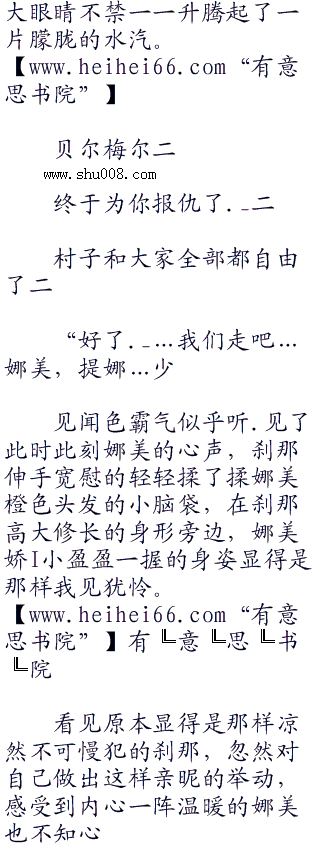 大眼睛不禁一一升腾起了一
片朦胧的水汽。
【www.heihei66.com“有意
思书院”】
贝尔梅尔二
www.shu008.com
终于为你报仇了._二
村子和大家全部都自由
了二
“好了._…我们走吧…
娜美，提娜…少
见闻色霸气似乎听.见了
此时此刻娜美的心声，刹那
伸手宽慰的轻轻揉了揉娜美
橙色头发的小脑袋，在刹那
高大修长的身形旁边，娜美
娇I小盈盈一握的身姿显得是
那样我见犹怜。
【www.heihei66.com“有意
思书院”】有╚意╚思╚书
╚院
看见原本显得是那样凉
然不可慢犯的刹那，忽然对
自己做出这样亲昵的举动，
感受到内心一阵温暖的娜美
也不知心